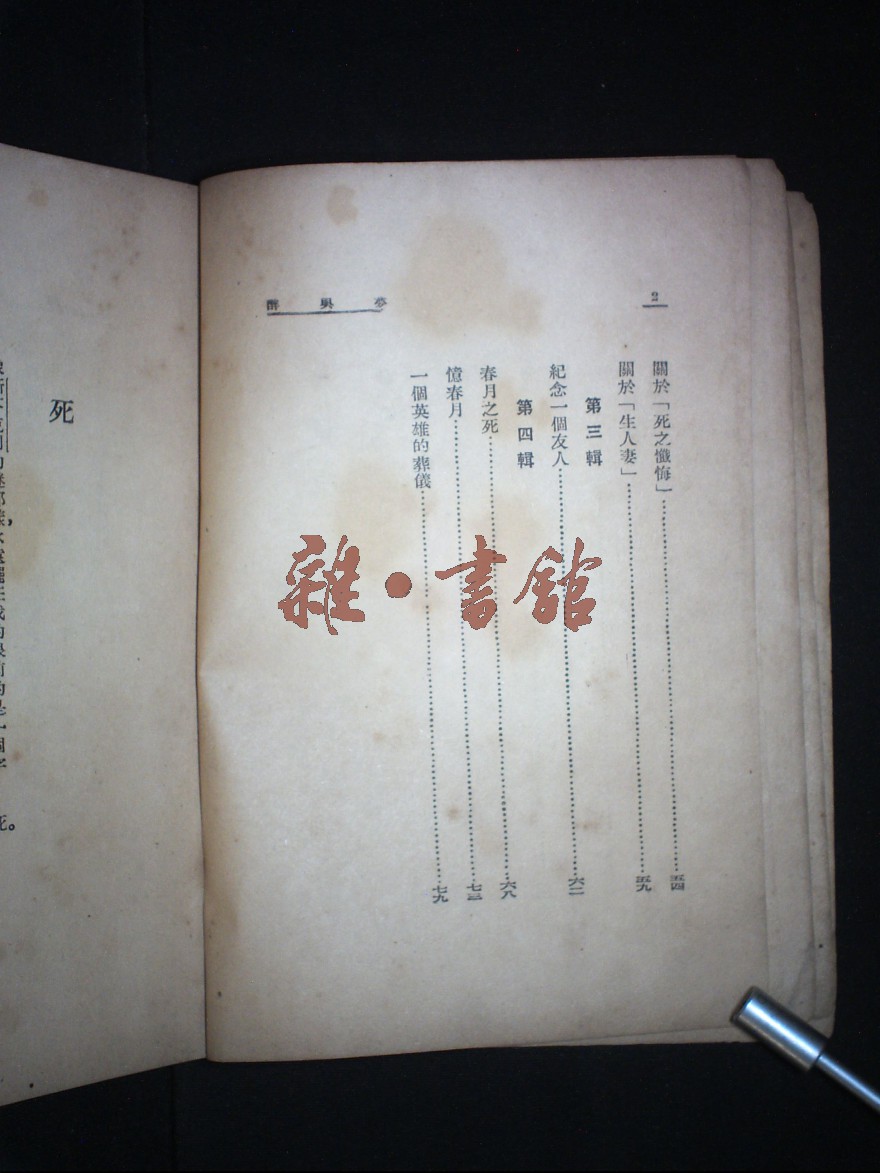 2
夢與醉
關於「死之懺悔」……五四
關於「生人妻」……五九
第三輯
紀念一個友人……六二
第四輯
春月之死……六八
憶春月……七三
一個英雄的葬儀……七九
死
雜·書館